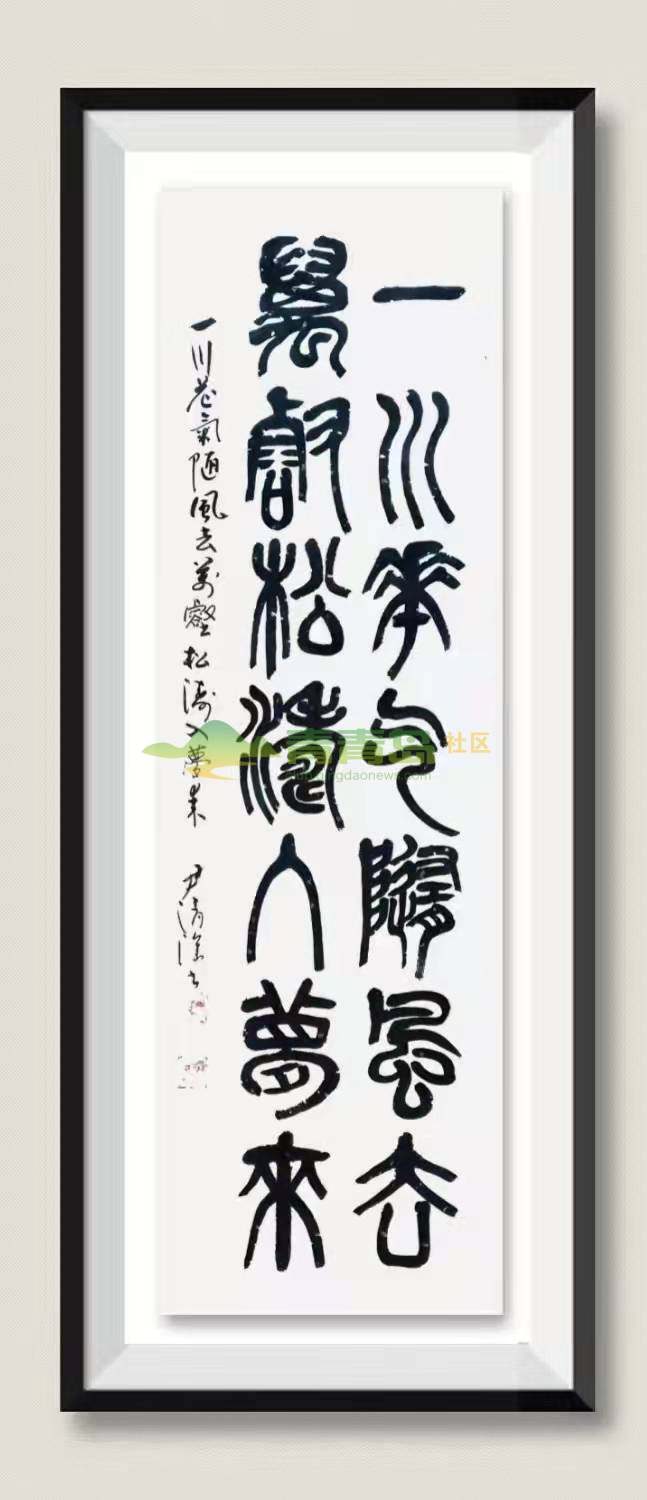 一川華气隨風去
萬壑松濤入夢來
一川花氣随風去萬壑松濤入夢来
尹清
青青岛社区
qingdaonews.com